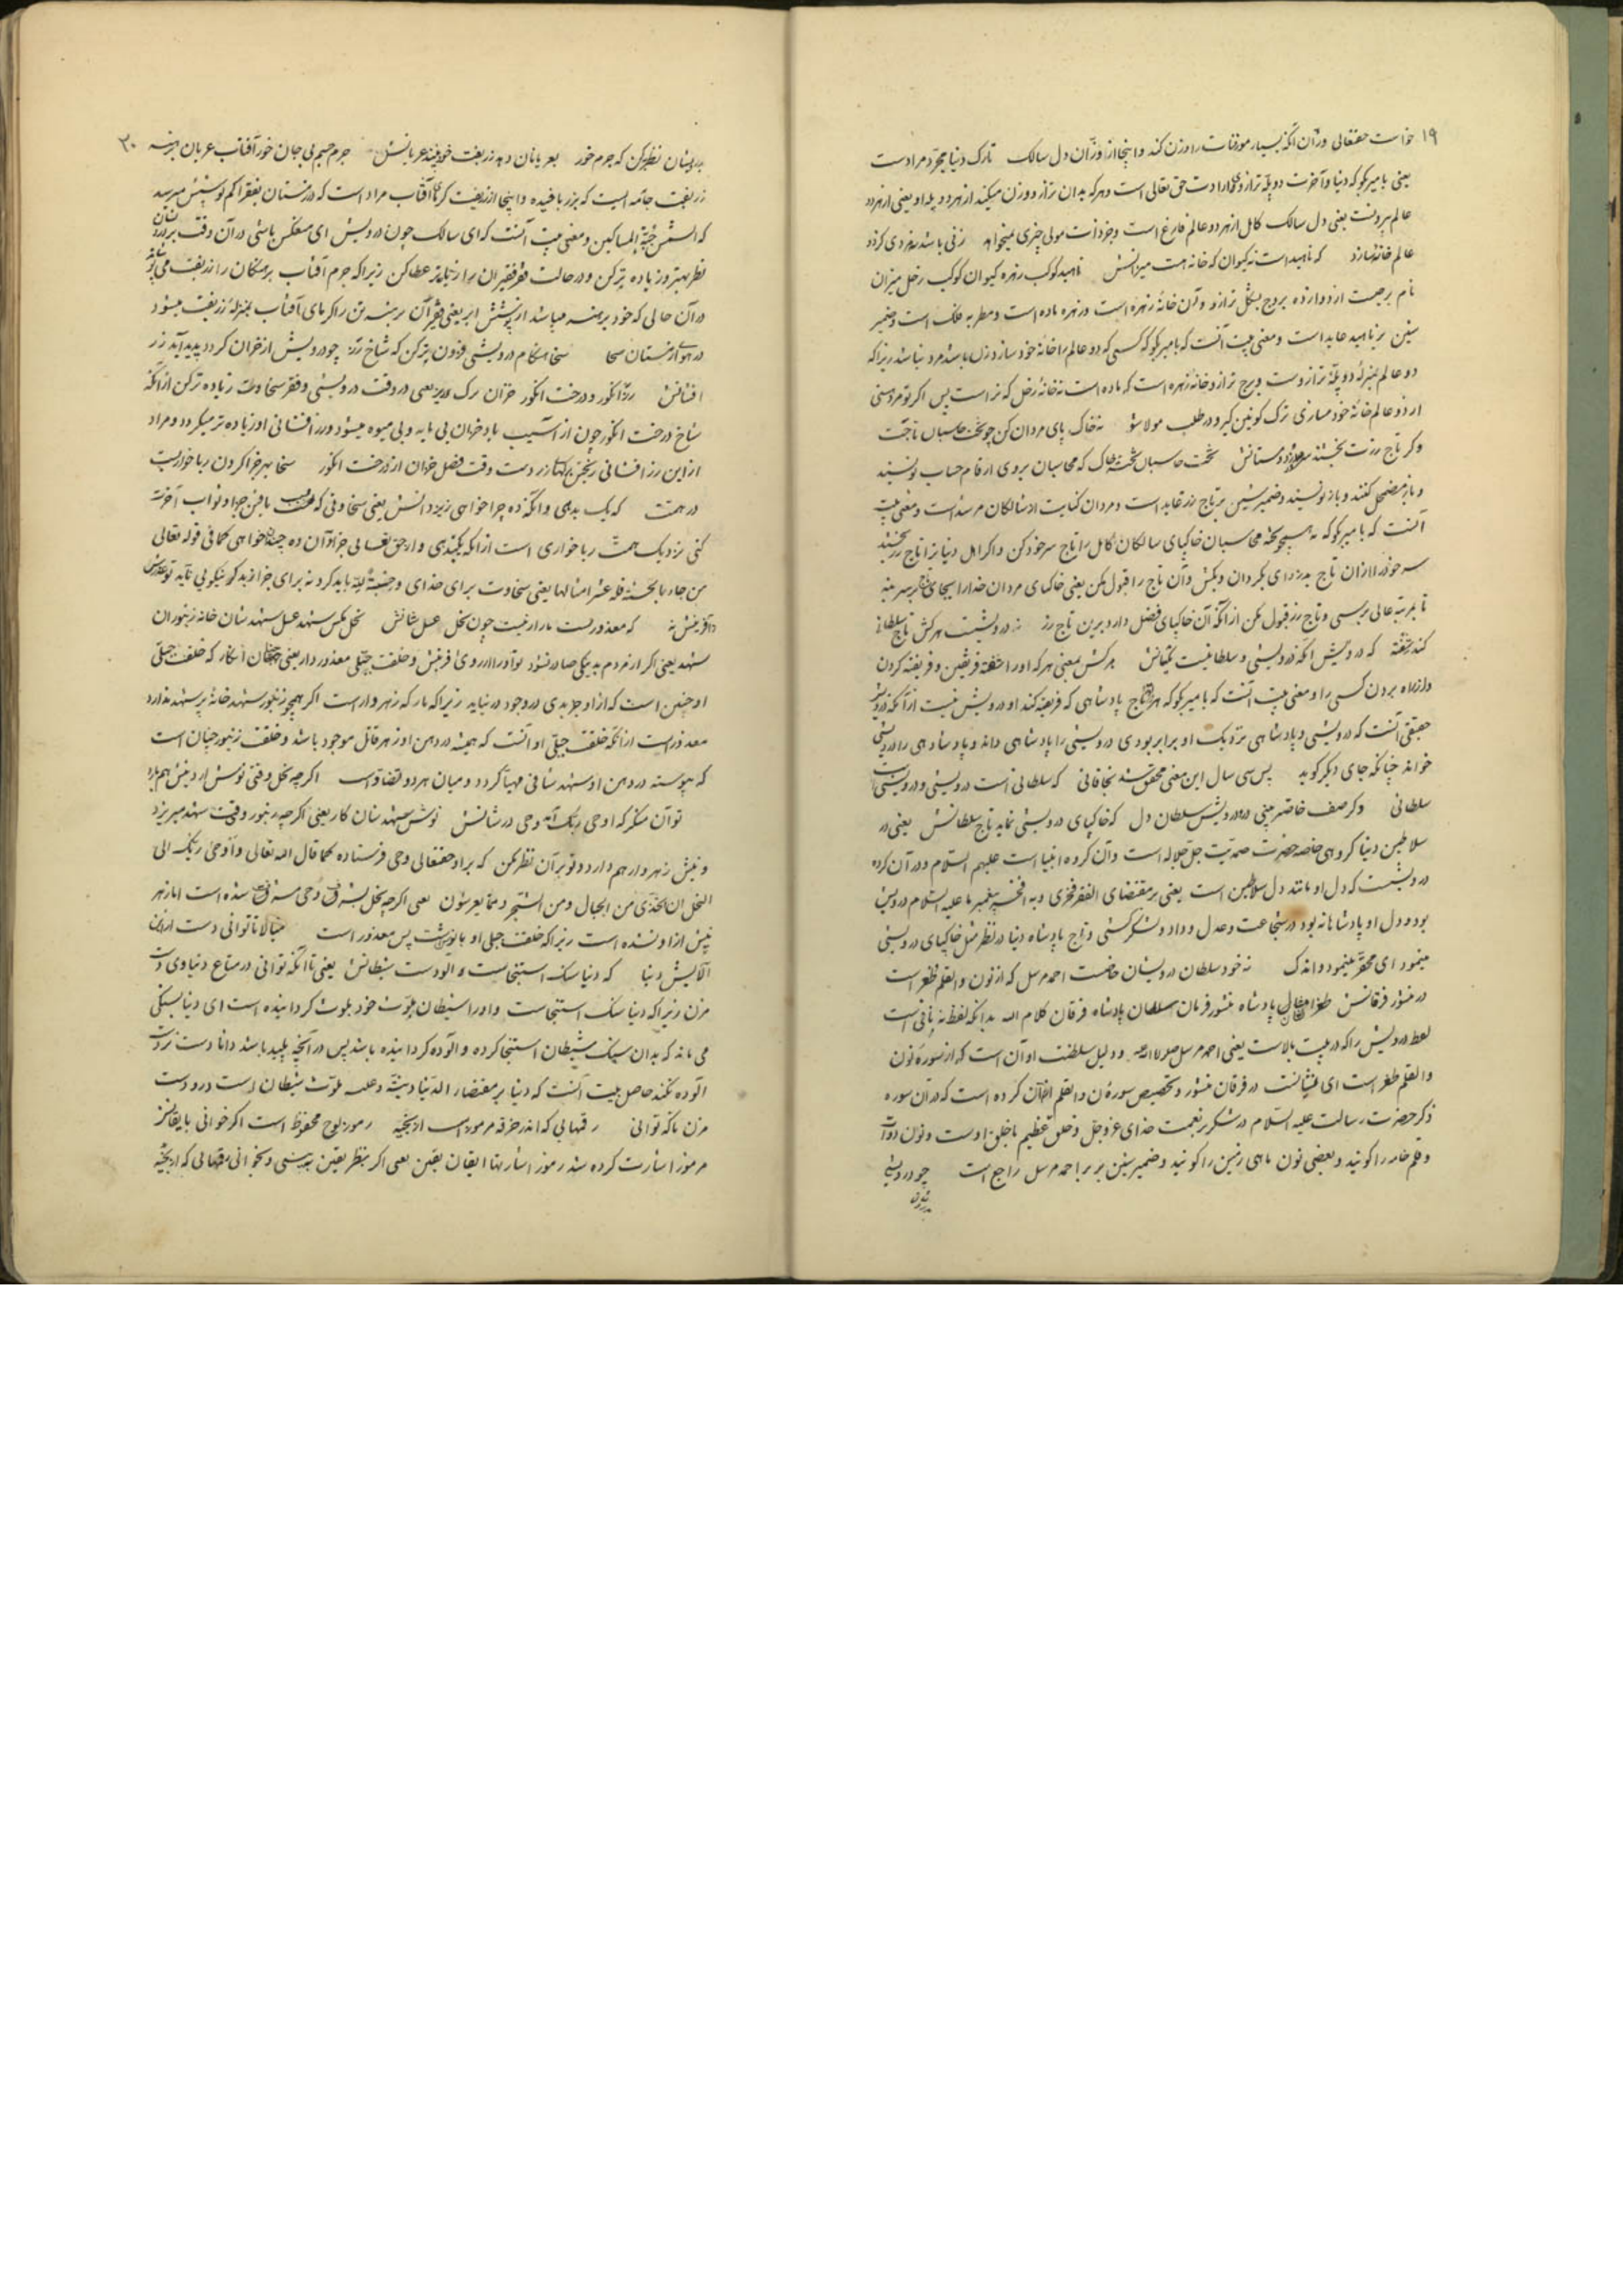 ۱۹
خواست حقتعالی وزّان آنکه بسیار موزونات را وزن کند و اینجا از وزّان دل سالک تارک دنیا مجرّد مرادست
یعنی با میر بگو که دنیا و آخرت دو پلّهٔ ترازوی ارادت حق تعالی است و هرکه بدان ترازو وزن میکند از هر دو پله او یعنی از هر دو
عالم بیرونست یعنی دل سالک کامل از هر دو عالم فارغ است و جز ذات مولی چیزی نمیخواهد زنی باشد نه مردی کز دو
عالم خانهٔ سازد که ناهید است نه کیوان که خانه هست میزانش ناهید کوکب زهره کیوان کوکب زحل میزان
نام برجیست از دوازده بروج بشکل ترازو و آن خانهٔ زهره است و زهره ماده است و مطربه فلک است و ضمیر
شین بر ناهید عاید است و معنی بیت آنست که با میر بگو که کسی که دو عالم را خانهٔ خود سازد زن باشد مرد نباشد زیرا که
دو عالم بمنزلهٔ دو پلّهٔ ترازوست و برج ترازو خانهٔ زهره است که ماده است نه خانهٔ زحل که نر است پس اگر تو مردمنی
از دو عالم خانهٔ خود مسازی ترک کونین گیر و در طلب مولا شو نه خاک پای مردان کن چو تخت حاسبان تاجت
وگر تاج زرت بخشند سر در دزد و مستانش تخت حاسبان تختهٔ خاک که محاسبان بروی ارقام حساب نویسند
و باز مضمحل کنند و باز نویسند و ضمیر شین بر تاج زر عاید است و مردان کنایت از سالکان مرشد است و معنی بیت
آنست که با میر بگو که همچو تختهٔ محاسبان خاکپای سالکان کامل را تاج سر خود کن و اگر اهل دنیا ترا تاج زر بخشند
سر خود را از آن تاج بدزد ای بگردان و بکش و آن تاج را قبول مکن یعنی خاکپای مردان خدا را بجای تاج بر سر بنه
تا بمرتبه عالی برسی و تاج زر قبول مکن از آنکه آن خاکپای فضل دارد برین تاج زر نه درویشست هرکش تاج سلطانی
کند سخته که درویش آنکه درویشی و سلطانیست یکسانش هرکش بمعنی هرکه او را سخته فریفتن و فریفته کردن
و از راه بردن کسی را و معنی بیت آنست که با میر بگو که هر که تاج پادشاهی که فریفته کند او درویش نیست از آنکه درویش
حقیقی آنست که درویشی و پادشاهی نزدیک او برابر بودی درویشی را پادشاهی داند و پادشاهی را درویشی
خواند چنانکه جای دیگر گوید پس سی سال این معنی محقق شد بخاقانی که سلطانی است درویشی و درویشی است
سلطانی وگر صف خاص‌تر بینی در و درویش سلطان دل که خاکپای درویشی نماید تاج سلطانش یعنی در
سلاطین دنیا گروهی خاصه حضرت صمدیت جل جلاله است و آن گروه انبیا است علیهم السلام و در آن گروه
درویشیست که دل او مانند دل سلاطین است یعنی بر مقتضای الفقر فخری و به افتخر پیغمبر ما علیه السلام درویش
بود و دل او پادشاهانه بود در شجاعت و عدل و داد و لشکرکشی و تاج پادشاه دنیا در نظر مثل خاکپای درویشی
مینمود ای محقّر مینمود و اندک نه خود سلطان درویشان خاصست احمد مرسل که از نون والقلم طغراست
در منشور فرقانش طغرا مثال پادشاه منشور فرمان سلطان پادشاه فرقان کلام الله بدانکه لفظ نه نافی است
لفظ درویش را که در بیت بالاست یعنی احمد مرسل و دلیل سلطنت او آن است که از سورهٔ نون
والقلم طغراست ای نشانست در فرقان منشور و تخصیص سورهٔ ن والقلم از آن کرده است که در آن سوره
ذکر حضرت رسالت علیه السلام در شکر بر نعمت خدای عزوجل و خلق عظیم با خلق اوست و نون دوات
و قلم خامه را گویند و بعضی نون ماهی زمین را گویند و ضمیر شین بر براحمد مرسل راجع است چو درویشی
بدرویشان
۲۰
بدرویشان نظر به کن که جرم خور بعریانان دهد زربفت خود بیند عریانش جرم جسم بی جان خور آفتاب عریان برهنه
زربفت جامه ایست که بزر بافیده و اینجا از زربفت گرمای آفتاب مراد است که در زمستان بفقرا کم پوشش میرسد
که الشمس جبّة المساکین و معنی بیت آنست که ای سالک چون درویش ای مفلس باشی در آن وقت بر درویشان
نظر بهتر و زیاده تر کن و در حالت فقر فقیران را زیاده‌تر عطا کن زیرا که جرم آفتاب برهنگان را زربفت می پوشاند
در آن حالی که خود برهنه میباشد از پوشش ابر یعنی قرص آن برهنه تن را گرمای آفتاب بمنزلهٔ زربفت میشود
در هوای زمستان سخا سخا هنگام درویشی فزون تر کن که شاخ رز چو درویش از خزان گردد پدید آید زر
افشانش رز انگور و درخت انگور خزان برگ ریز یعنی در وقت درویشی و فقر سخاوت زیاده‌تر کن از آنکه
شاخ درخت انگور چون از آسیب باد خزان بی مایه و بی میوه میشود زر افشانی او زیاده‌تر میگردد و مراد
از این زر افشانی ریختن برگهای زرد است وقت فصل خزان از درخت انگور سخا بهر جزا کردن رباخواریست
در همت که یک بدهی و آنگه ده جزا خواهی ز یزدانش یعنی سخاوتی که بطلب یافتن جزا و ثواب آخرت
کنی نزدیک همت رباخواری است از آنکه یک بدهی و از حق تعالی جزای آن ده چندان خواهی کما فی قوله تعالی
من جاء بالحسنة فله عشر امثالها یعنی سخاوت برای خدای و حسبةً لله باید کرد نه برای جزا نه بد گو نیکویی ناید تو معذورش
دار آفرینش نه که معذورست مار ار نیست چون نحل عسل شانش نحل مگس شهد عسل شهد شان خانه زنبوران
شهد یعنی اگر از مردم بد نیکی صادر نشود تو او را از روی آفرینش و خلقت جبلّی معذور دار یعنی چنان انگار که خلقت جبلّی
او چنین است که از او جز بدی در وجود در نیاید زیرا که مار که زهردار است اگر همچو زنبور شهد خانهٔ پر شهد ندارد
معذور است از آنکه خلقت جبلّی او آنست که همیشه در دهن او زهر قاتل موجود باشد و خلقت زنبور چنان است
که پیوسته در دهن او شهد شافی مهیّا گردد و میان هر دو تفاوت است اگرچه نحل وقتی نوش ارد نیش هم دارد
تو آن منگر که اوحی ربک آمد وحی در شانش نوش شهد شان کار یعنی اگرچه زنبور وقتی شهد میریزد
و نیش زهردار هم دارد و تو بر آن نظر مکن که بر او حقتعالی وحی فرستاده کما قال الله تعالی و أوحی ربک الی
النحل ان اتخذی من الجبال و من الشجر و ممّا یعرشون یعنی اگرچه نحل بشرف وحی مشرف شده است اما زهر
نیش از او نشده است زیرا که خلقت جبلی او با نیش است پس معذور است میالا تا توانی دست ازین
آلایش دنیا که دنیا سنگ استنجاست و آلودست شیطانش یعنی تا آنکه توانی در متاع دنیاوی دست
مزن زیرا که دنیا سنگ استنجاست و او را شیطان بلوث خود بلوث گردانیده است ای دنیا بسنگی
می ماند که بدان سنگ شیطان استنجا کرده و آلوده گردانیده باشد پس در آنچه پلید باشد دانا دست نزند
آلوده نکند حاصل بیت آنست که دنیا بر مقتضاء الدنیا دنیّة و ملوث شیطان است در و دست
مزن تا که توانی رقمهایی که اندر خرقه مرموز است از بخیه رموز لوح محفوظ است اگر خوانی بایقانش
مرموز اشارت کرده شد رموز اشارتها ایقان یقین یعنی اگر بنظر یقین به بینی و بخوانی رقمهایی که از بخیه